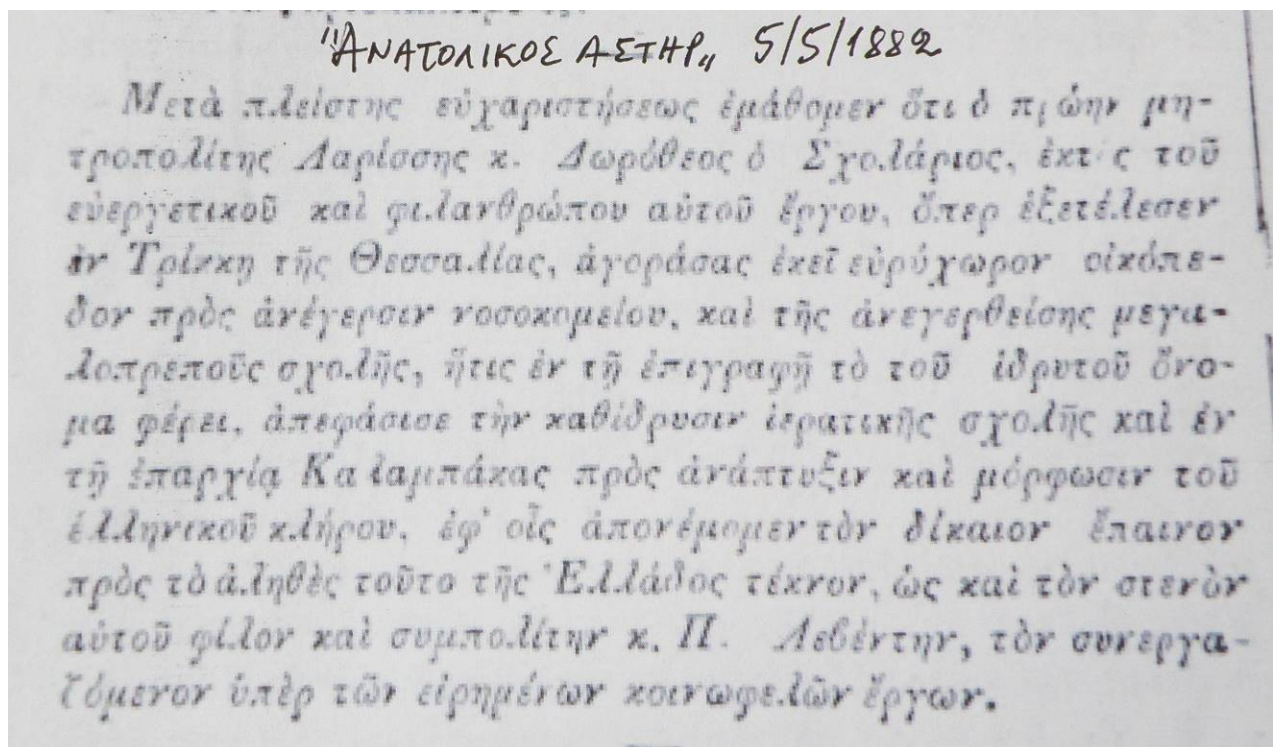 "ΑΝΑΤΟΛΙΚΟΣ ΑΣΤΗΡ„ 5/5/1882
Μετὰ πλείστης εὐχαριστήσεως ἐμάθομεν ὅτι ὁ πρώην μη-
τροπολίτης Λαρίσσης κ. Δωρόθεος ὁ Σχολάριος, ἐκτὸς τοῦ
εὐεργετικοῦ καὶ φιλανθρώπου αὐτοῦ ἔργου, ὅπερ ἐξετέλεσεν
ἐν Τρίκκῃ τῆς Θεσσαλίας, ἀγοράσας ἐκεῖ εὐρύχωρον οἰκόπε-
δον πρὸς ἀνέγερσιν νοσοκομείου, καὶ τῆς ἀνεγερθείσης μεγα-
λοπρεποῦς σχολῆς, ἥτις ἐν τῇ ἐπιγραφῇ τὸ τοῦ ἱδρυτοῦ ὄνο-
μα φέρει, ἀπεφάσισε τὴν καθίδρυσιν ἱερατικῆς σχολῆς καὶ ἐν
τῇ ἐπαρχίᾳ Καλαμπάκας πρὸς ἀνάπτυξιν καὶ μόρφωσιν τοῦ
ἑλληνικοῦ κλήρου, ἐφ' οἷς ἀπονέμομεν τὸν δίκαιον ἔπαινον
πρὸς τὸ ἀληθὲς τοῦτο τῆς Ἑλλάδος τέκνον, ὡς καὶ τὸν στενὸν
αὐτοῦ φίλον καὶ συμπολίτην κ. Π. Λεβέντην, τὸν συνεργα-
ζόμενον ὑπὲρ τῶν εἰρημένων κοινωφελῶν ἔργων.